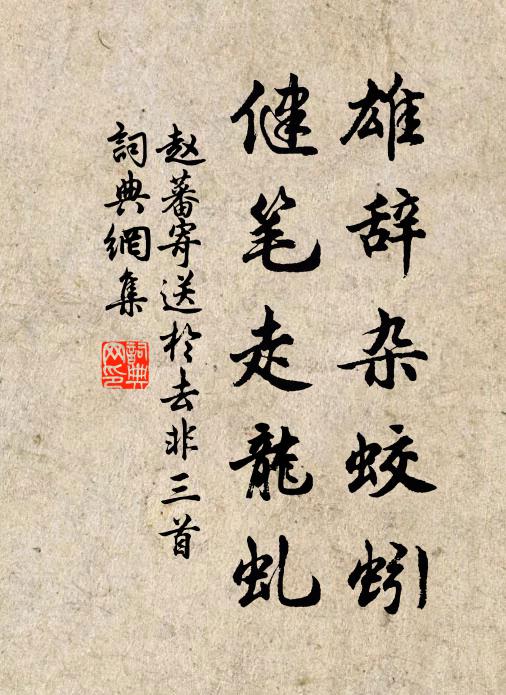 雄辞杂蛟蚓
健笔走龍虬
赵蕃寄送於去非三首
詞典網集
詞典网印